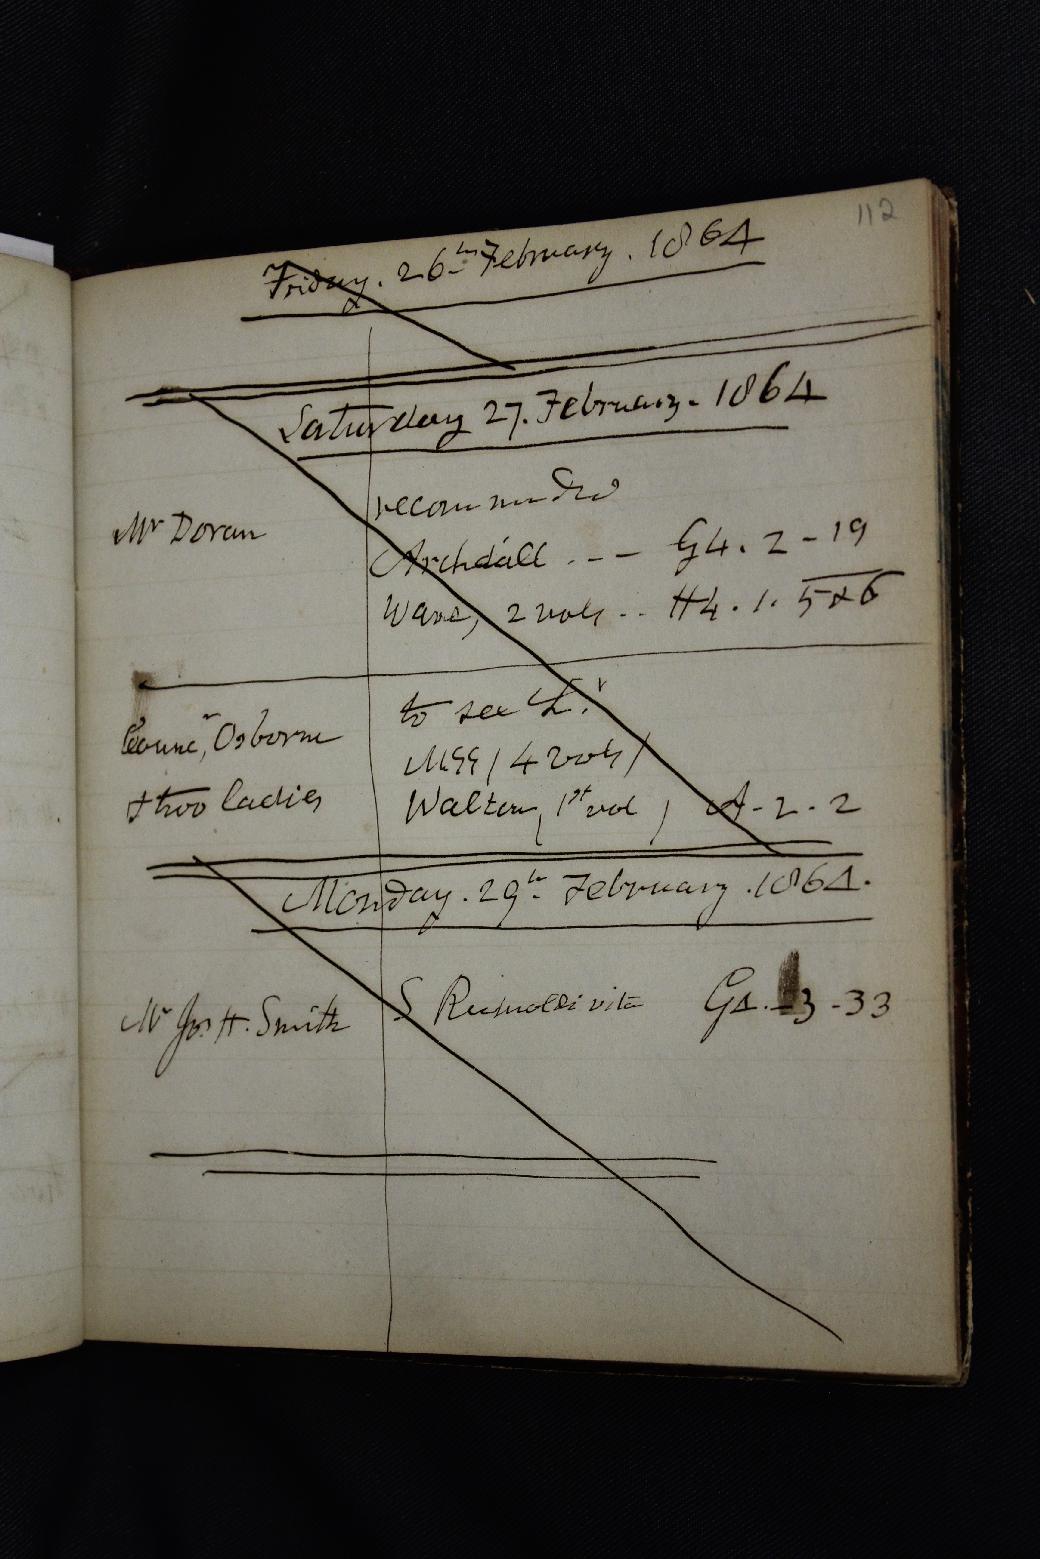 112
Friday. 26th February. 1864
Saturday 27. February. 1864
Mr Doran
recommended
Archdall . - - G4. 2 - 19
Ware, 2 vols .. H4. 1. 5 & 6
Osborne
to see
& two ladies
MSS (4 vols)
Walton (1st vol) A - 2 - 2
Monday. 29th February. 1864.
Mr Jos H. Smith
S Rumoldi vita G4. - 3 - 33